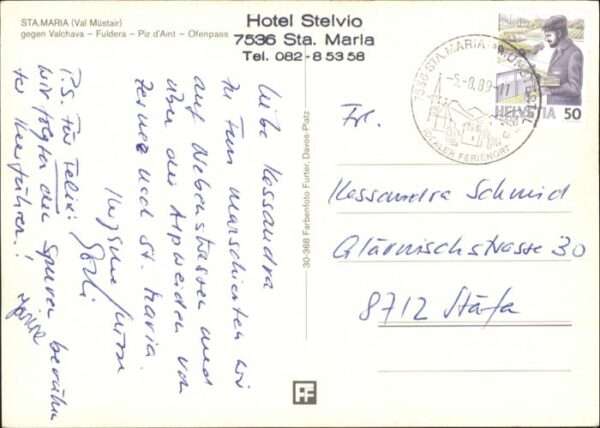 STA.MARIA (Val Müstair)
gegen Valchava – Fuldera – Piz d'Aint – Ofenpass
Hotel Stelvio
7536 Sta. Maria
Tel. 082 - 8 53 58
7536 STA.MARIA
-5.-8.89-11
IDEALER FERIENORT
HELVETIA 50
Liebe Kessandra
zu Fuss marschierten wir
auf Nebenstrassen und
über die Alpweiden von
Zernez nach St. Maria.
Herzliche Grüsse
P.S. Für Felix:
wir folgten den Spuren berühm
ter Heerführer!
30-368 Farbenfoto Furter, Davos-Platz
Frl.
Kessandra Schmid
Glärnischstrasse 30
8712 Stäfa